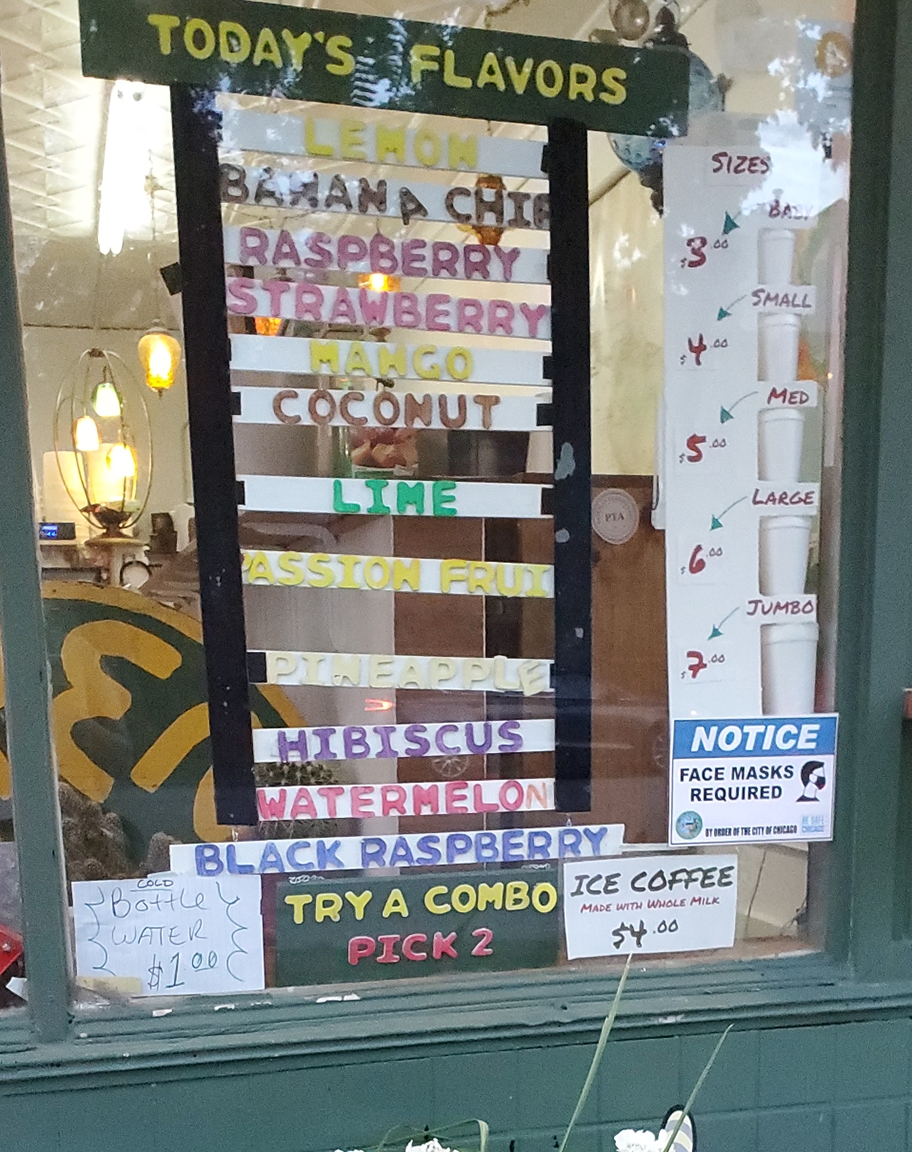 TODAY'S FLAVORS
LEMON
BANANA CHIP
RASPBERRY
STRAWBERRY
MANGO
COCONUT
LIME
PASSION FRUI
PINEAPPLE
HIBISCUS
WATERMELON
BLACK RASPBERRY
TRY A COMBO
PICK 2
COLD
BOTTLE
WATER
$1.00
ICE COFFEE
MADE WITH WHOLE MILK
$4.00
SIZES
BABY
$3.00
SMALL
$4.00
MED
$5.00
LARGE
$6.00
JUMBO
$7.00
NOTICE
FACE MASKS
REQUIRED
BY ORDER OF THE CITY OF CHICAGO
BE SAFE
CHICAGO
PTA